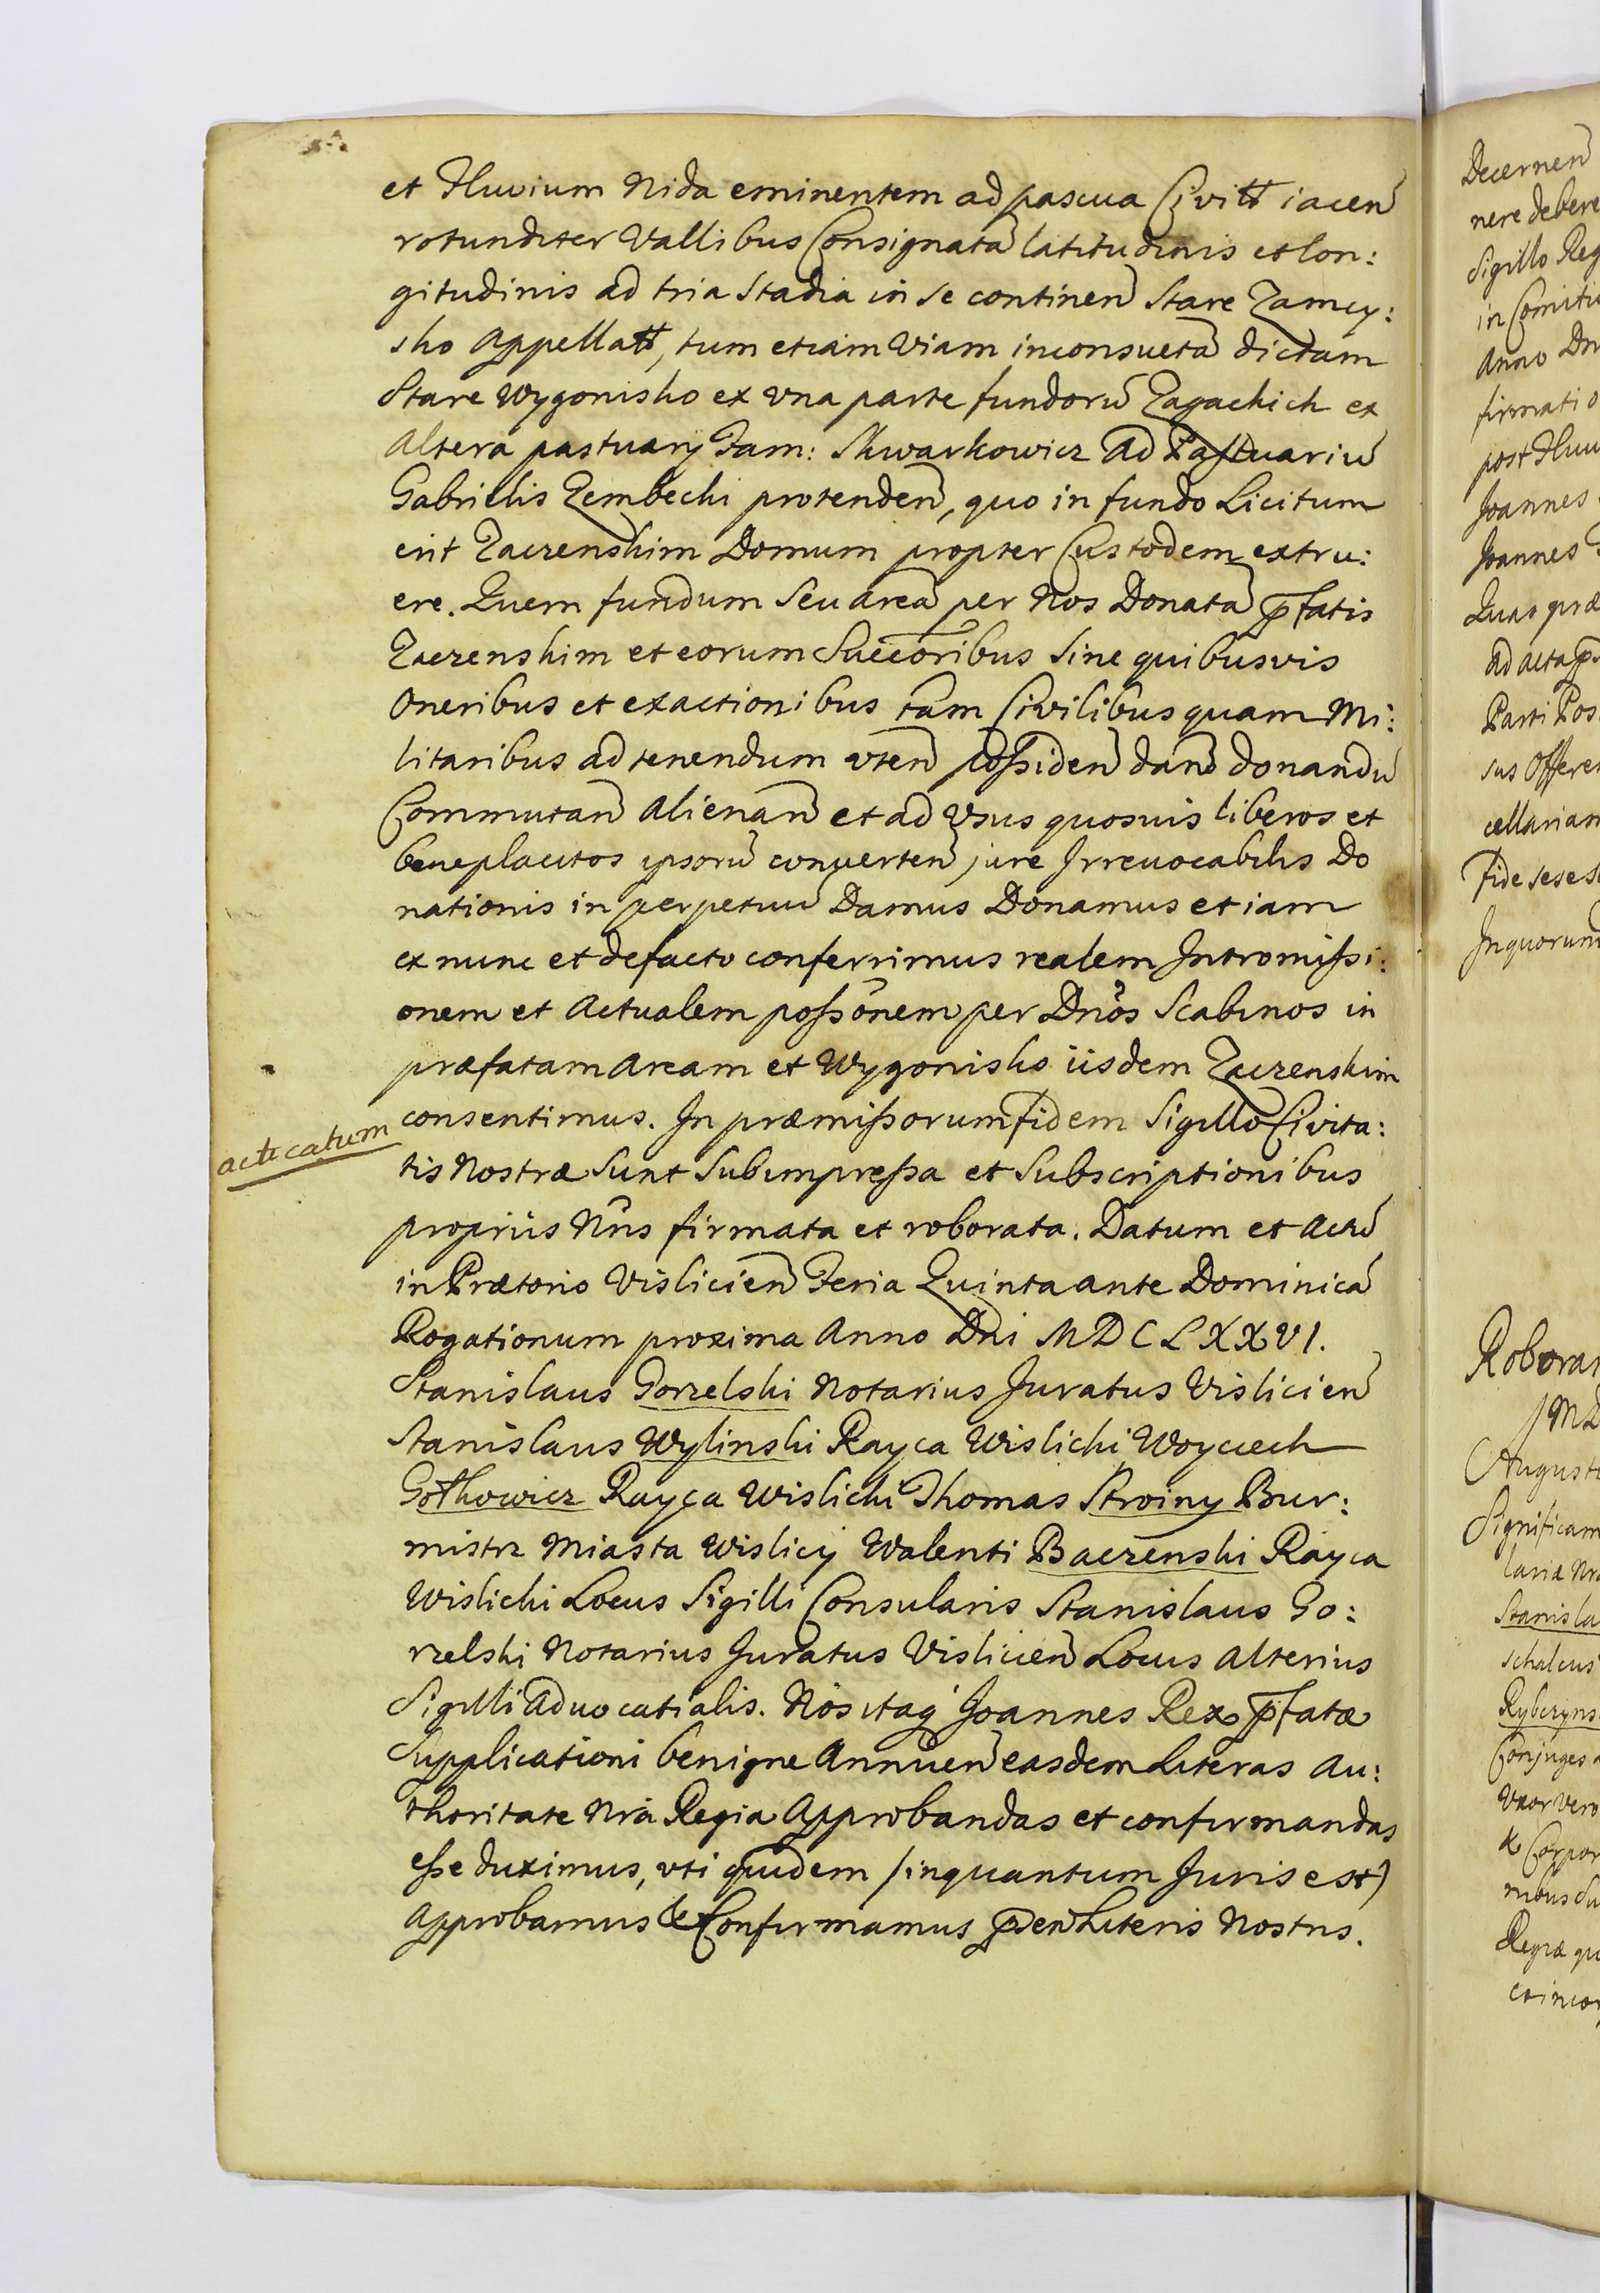 et Fluvium Nida eminentem ad pascua Civitt iacen
rotunditer Vallibus Consignata latitudinis et lon:
gitudinis ad tria Stadia in se continen Stare Zamcy:
sko Appellatt, tum etiam Viam inconsueta dictam
Stare Wygonisko ex vna parte fundoru Zagackich ex
Altera pastuarij Fam: Skwarkowicz Ad Pastuariu
Gabrielis Zembecki protenden, quo in fundo Licitum
erit Zaczenskim Domum propter Custodem extru:
ere. Quem fundum Seu area per Nos Donata pfatis
Zaczenskim et eorum Succoribus Sine quibusvis
Oneribus et exactionibus tam Civilibus quam Mi:
litaribus ad tenendum vten possiden dand donandu
Commutan Alienan et ad Vsus quosuis liberos et
beneplacitos ipsoru conuerten jure Irreuocabilis Do
nationis in perpetuu Damus Donamus et iam
ex nunc et de facto conferrimus realem Intromissi:
onem et Actualem possonem per Dnos Scabinos in
præfatam Aream et Wygonisko iisdem Zaczenskim
consentimus. In præmissorum fidem Sigillo Civita:
acticatum
tis Nostræ Sunt Subimpressa et Subscriptionibus
proprijs Nris firmata et roborata. Datum et Actu
in Prætorio Vislicien Feria Quinta ante Dominica
Rogationum proxima Anno Dni MDCLXXVI.
Stanislaus Gorzelski Notarius Juratus Vislicien
Stanislaus Wylinski Rayca Wislicki Woyciech
Gotkowicz Rayca Wislicki Thomas Stroiny Bur:
mistrz Miasta Wislicy Walenti Baczenski Rayca
Wislicki Locus Sigilli Consularis Stanislaus Go:
rzelski Notarius Juratus Vislicien Locus Alterius
Sigilli Aduocatialis. Nos itaq Joannes Rex pfatæ
Supplicationi benigne Annuen easdem Literas Au:
thoritate Nra Regia Approbandas et confirmandas
esse duximus, vti quidem /inquantum Juris est)
Approbamus & Confirmamus psen Literis Nostris.
Decernen
nere debere
Sigillo Reg
in Comitu
Anno Dn
firmatio
post Fluu
Joannes
Joannes
Quas præ
Ad acta
Parti Pos
sus Offere
cellarian
fide sese s
In quorum
Robora
August
Significam
lariæ Nr
Stanisla
schalcus
Ryberyns
Conjuges
Vxor vero
nibus Su
Regiæ qu